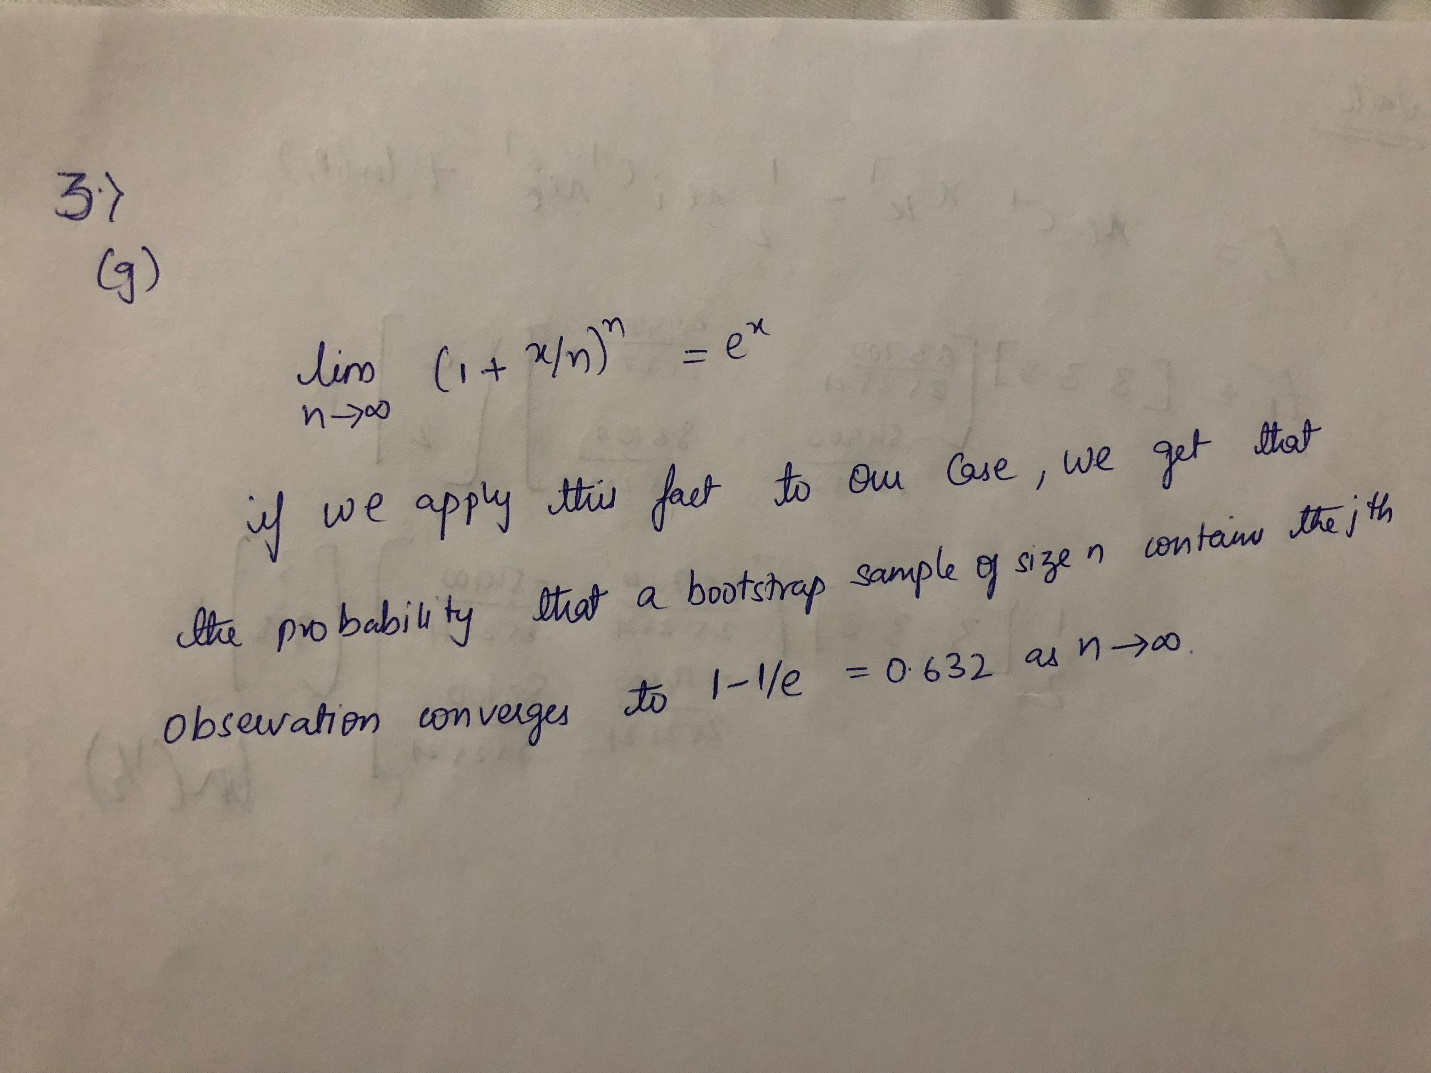 3.)
(g)
lim (1 + x/n)^n = e^x
n→∞
if we apply this fact to our case, we get that
the probability that a bootstrap sample of size n contains the jth
observation converges to 1-1/e = 0.632 as n→∞.